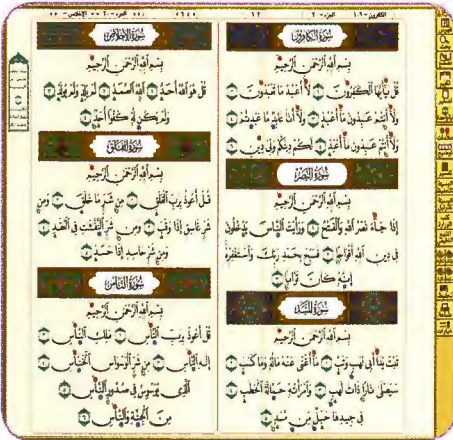 سورة الكافرون
بسم الله الرحمن الرحيم
قل يأيها الكفرون لا أعبد ما تعبدون
ولا أنتم عبدون ما أعبد ولا أنا عابد ما عبدتم
ولا أنتم عبدون ما أعبد لكم دينكم ولي دين
سورة النصر
بسم الله الرحمن الرحيم
إذا جاء نصر الله والفتح ورأيت الناس يدخلون
في دين الله أفواجا فسبح بحمد ربك واستغفره
إنه كان توابا
سورة المسد
بسم الله الرحمن الرحيم
تبت يدا أبي لهب وتب ما أغنى عنه ماله وما كسب
سيصلى نارا ذات لهب وامرأته حمالة الحطب
في جيدها حبل من مسد
سورة الإخلاص
بسم الله الرحمن الرحيم
قل هو الله أحد الله الصمد لم يلد ولم يولد
ولم يكن له كفوا أحد
سورة الفلق
بسم الله الرحمن الرحيم
قل أعوذ برب الفلق من شر ما خلق ومن
شر غاسق إذا وقب ومن شر النفثت في العقد
ومن شر حاسد إذا حسد
سورة الناس
بسم الله الرحمن الرحيم
قل أعوذ برب الناس ملك الناس
إله الناس من شر الوسواس الخناس
الذي يوسوس في صدور الناس
من الجنة والناس